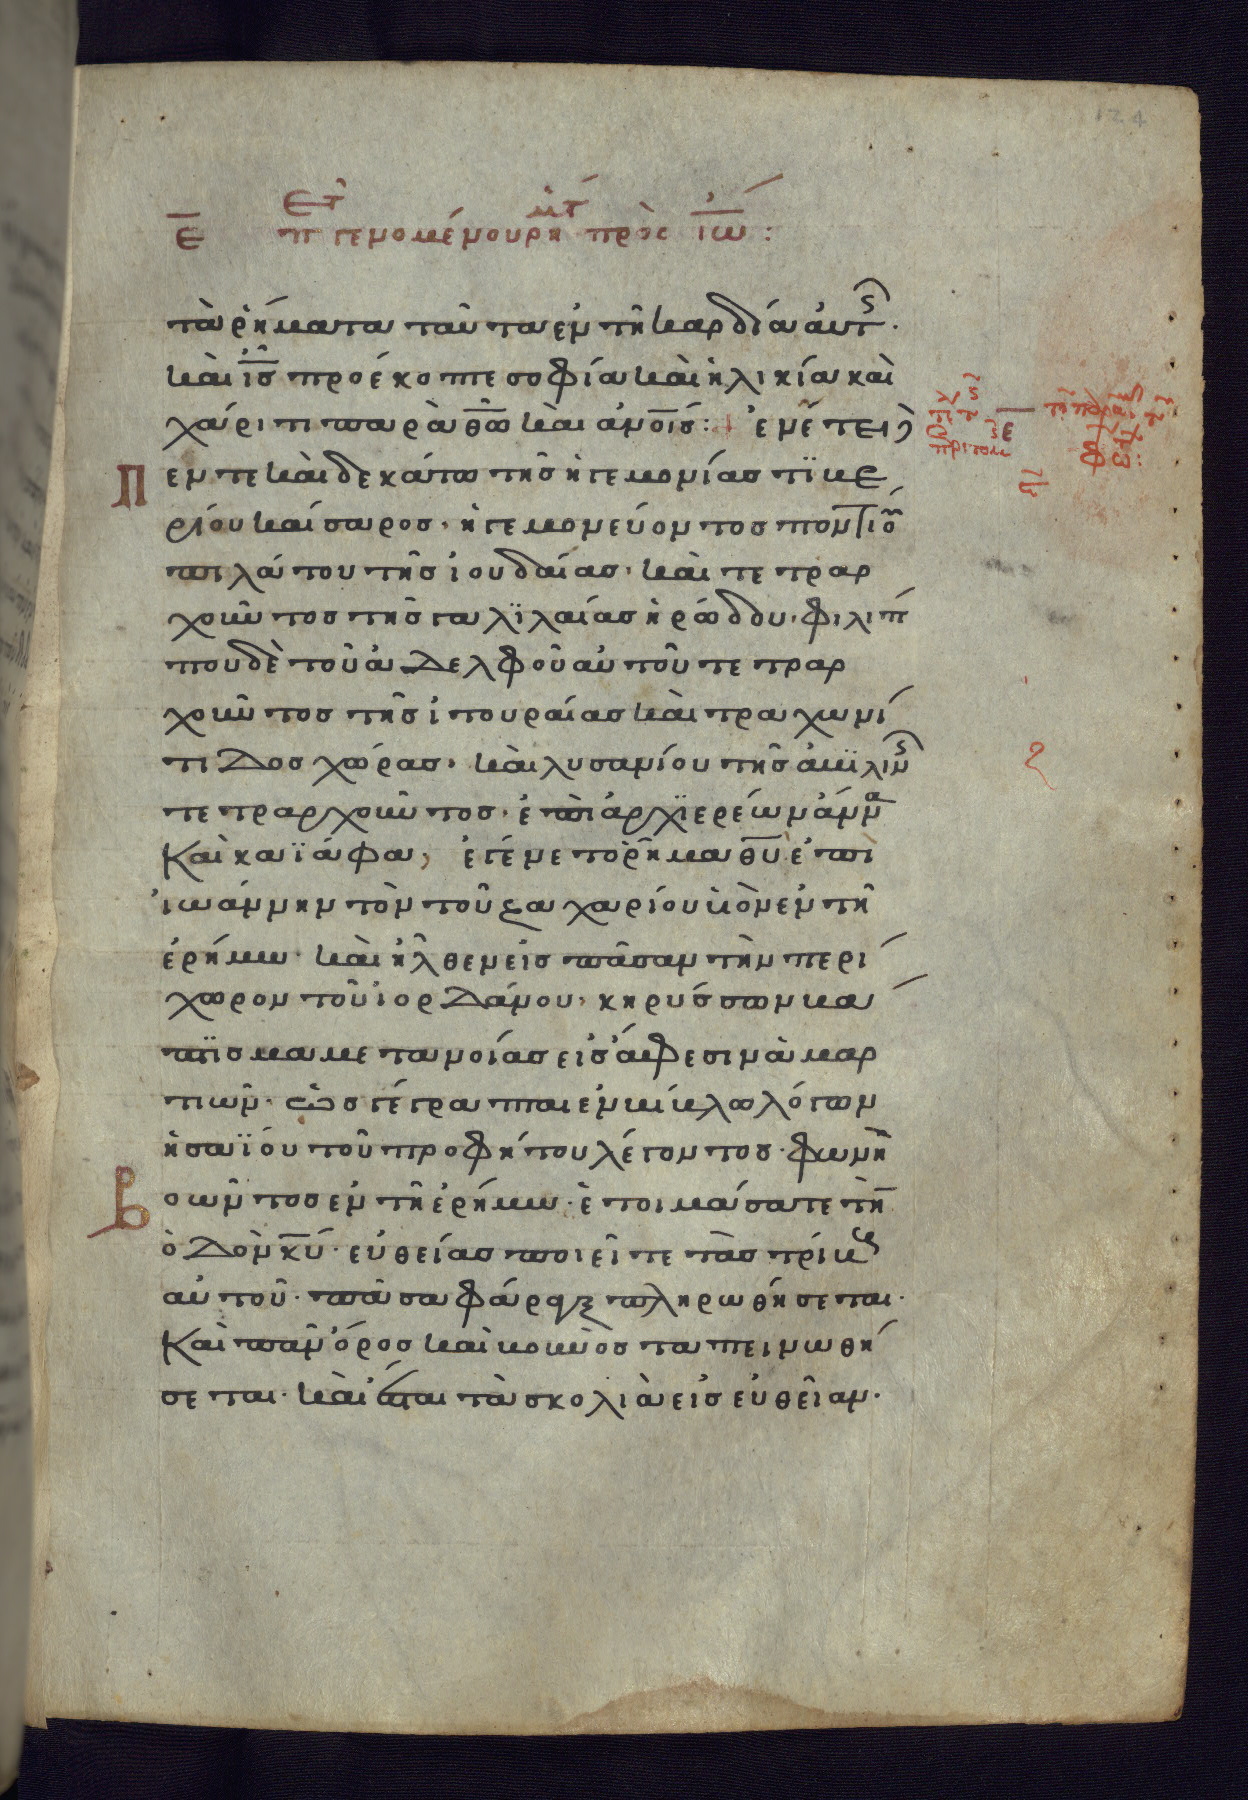 ε περὶ τοῦ γενομένου ῥήματος πρὸς ἰω:
τὰ ῥήματα ταῦτα ἐν τῆ καρδία αὐτς.
καὶ ις προέκοπτε σοφία καὶ ἡλικία καὶ
χάριτι παρὰ θω καὶ ἀνοις:
ἐν ἔτει
ἐντεκαιδεκάτω τῆς ἡγεμονίας τϊβε
ρίου καίσαρος· ἡγεμονεύοντος ποντίου
πιλάτου τῆς ἰουδαίας· καὶ τετραρ
χοῦντος τῆς γαλϊλαίας ἡρώδου· φιλίπ
που δὲ τοῦ ἀδελφοῦ αὐτοῦ τετραρ
χοῦντος τῆς ἰτουραίας καὶ τραχωνί
τιδος χώρας· καὶ λυσανίου τῆς ἀβϊλιν
τετραρχοῦντος· ἐπὶ ἀρχϊερέων ἄννα
καὶ καϊάφα, ἐγένετο ῥῆμα θυ ἐπὶ
ἰωάννην τὸν τοῦ ζαχαρίου ὑὸν ἐν τῆ
ἐρήμω· καὶ ἦλθεν εἰς πᾶσαν τὴν περί
χωρον τοῦ ἰορδάνου, κηρύσσων βα
πτϊσμα μετανοίας εἰς ἄφεσιν ἁμαρ
τιῶν· ὡς γέγραπται ἐν βίβλω λόγων
ἠσαϊου τοῦ προφήτου λέγοντος· φωνὴ
βοῶντος ἐν τῆ ἐρήμω· ἑτοιμάσατε τὴν
ὁδὸν κυ· εὐθείας ποιεῖτε τὰς τρίβους
αὐτοῦ· πᾶσα φάραγξ πληρωθήσεται·
καὶ πᾶν ὄρος καὶ βουνὸς ταπεινωθή
σεται· καὶ ἔσται τὰ σκολιὰ εἰς εὐθεῖαν·
Π
124